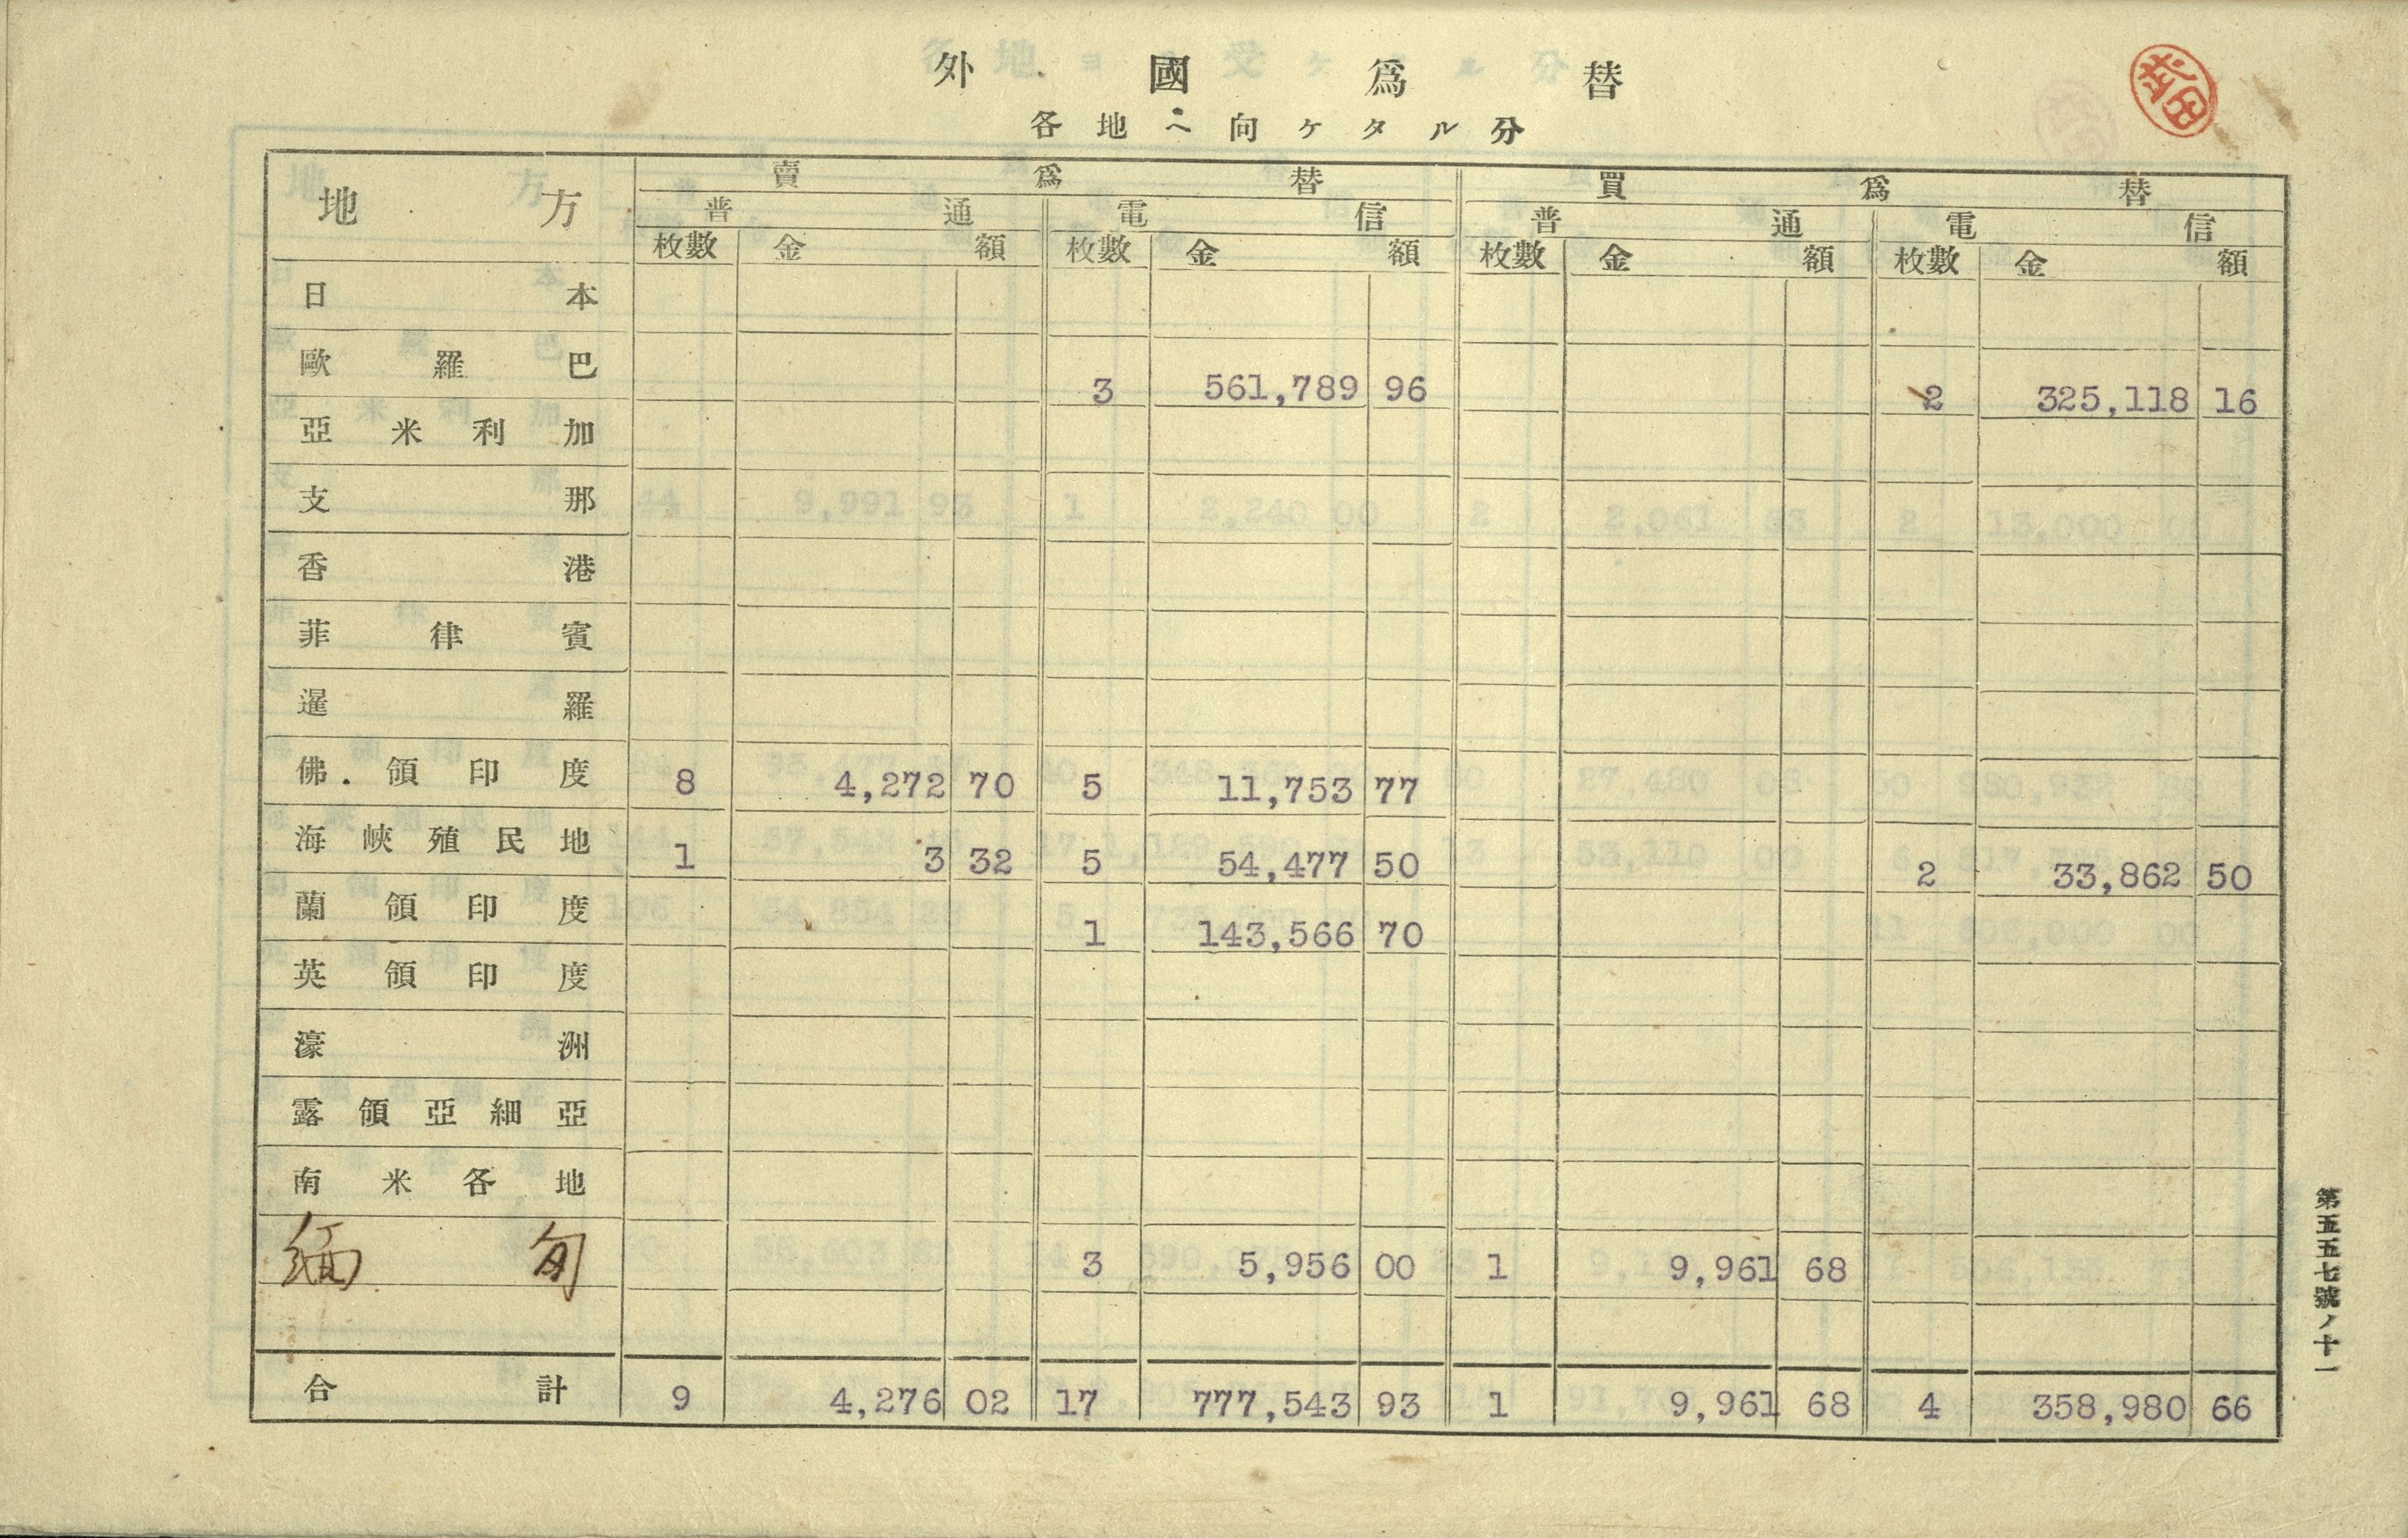 外國爲替
各地へ向ケタル分
武田
地方 賣爲替 買爲替
普通 電信 普通 電信
枚數 金額 枚數 金額 枚數 金額 枚數 金額
日本
歐羅巴 3 561,789 96 2 325,118 16
亞米利加
支那
香港
菲律賓
暹羅
佛領印度 8 4,272 70 5 11,753 77
海峽殖民地 1 3 32 5 54,477 50 2 33,862 50
蘭領印度 1 143,566 70
英領印度
濠洲
露領亞細亞
南米各地
緬甸 3 5,956 00 1 9,961 68
合計 9 4,276 02 17 777,543 93 1 9,961 68 4 358,980 66
第五五七號ノ十一